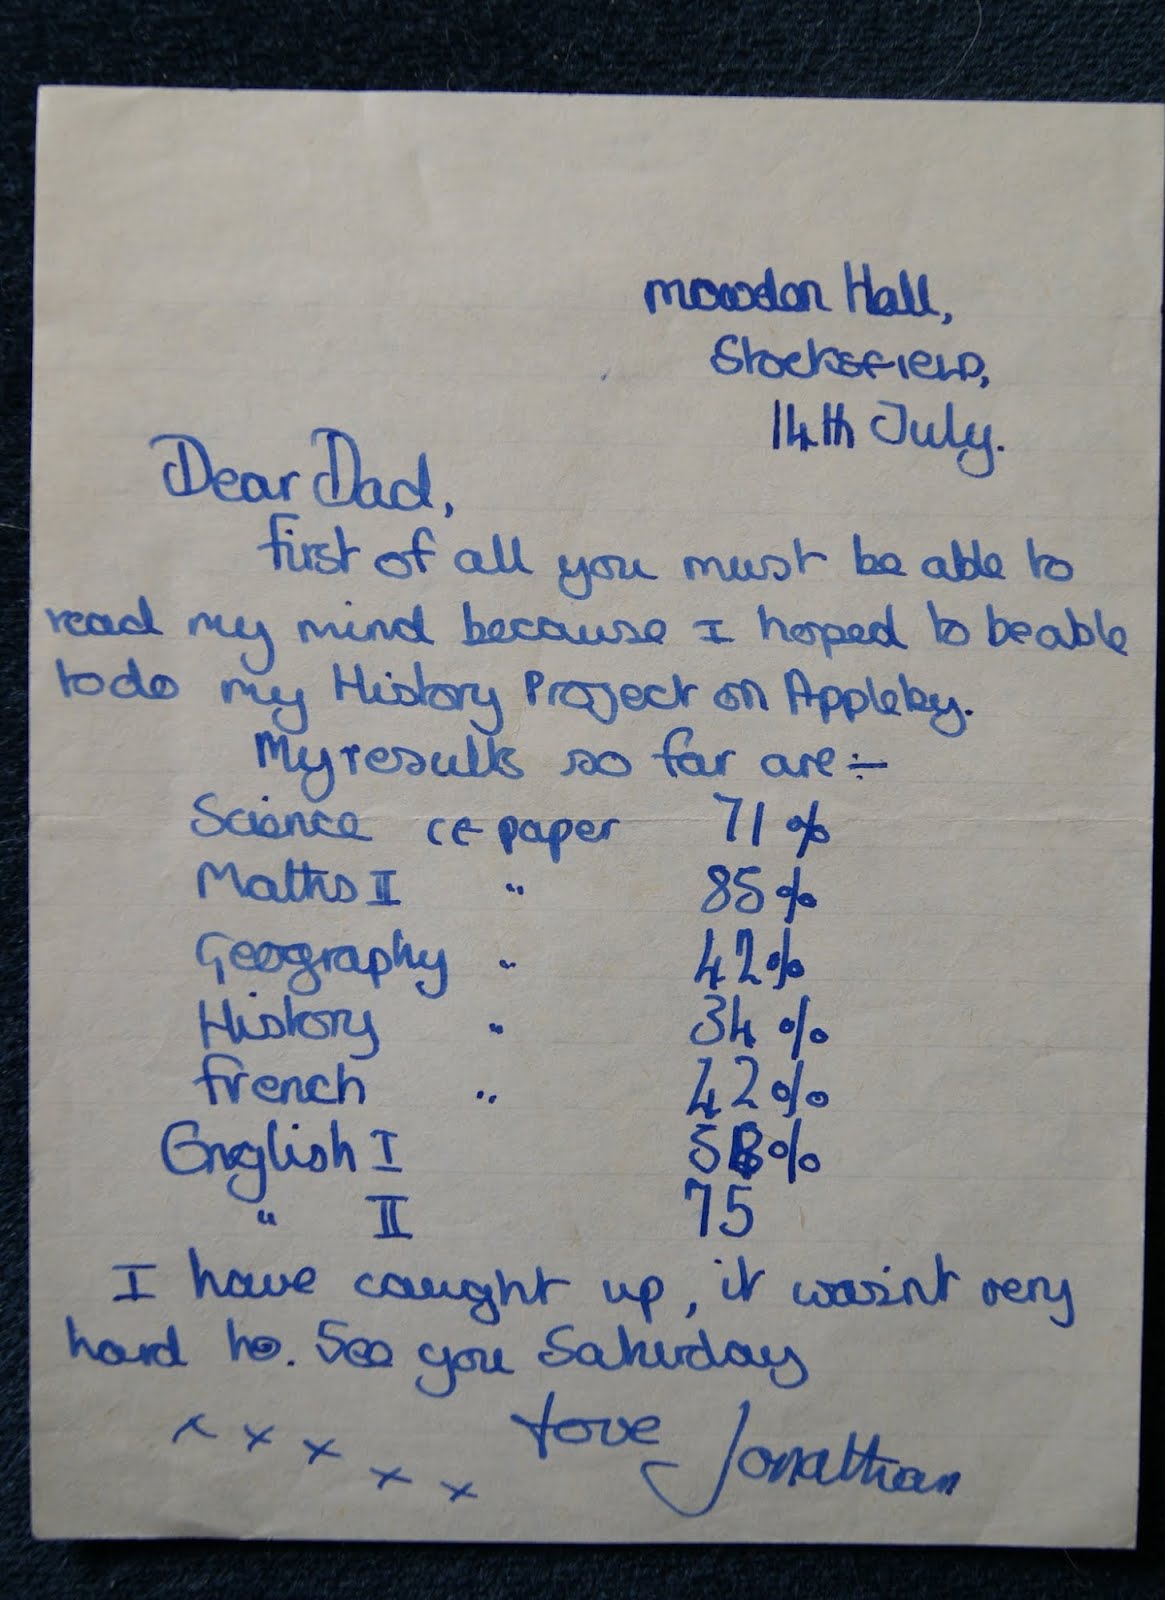 Mowdon Hall,
Stocksfield,
14th July.
Dear Dad,
first of all you must be able to
read my mind because I hoped to beable
todo my History Project on Appleby.
My results so far are :-
Science CE paper 71%
Maths II " 85%
Geography " 42%
History " 34%
french " 42%
English I 5%
" II 75
I have caught up, it wasint very
hard to. See you Saturday
x x x x x love Jonathan